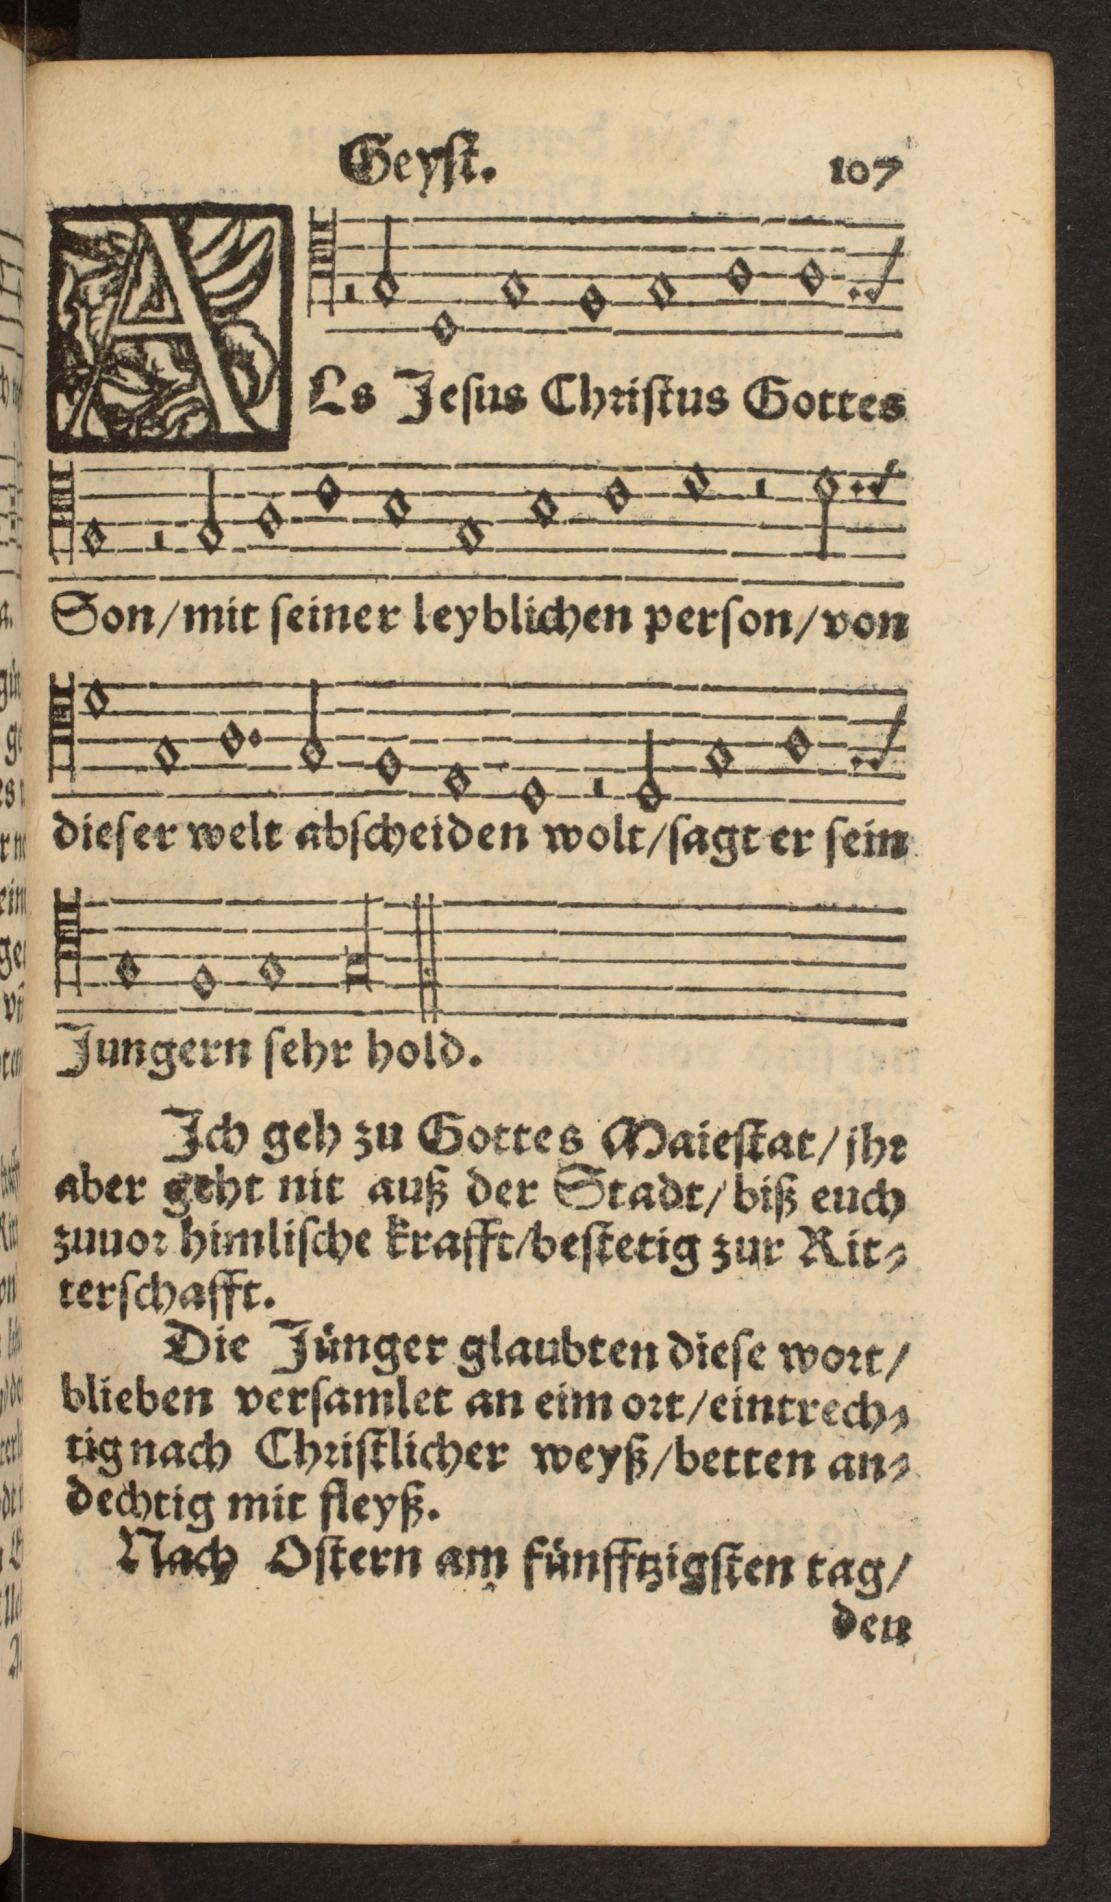 Geyſt. 107
ALs Jeſus Chriſtus Gottes
Son/mit ſeiner leyblichen perſon/von
dieſer welt abſcheiden wolt/ſagt er ſein
Jungern ſehr hold.
Ich geh zu Gottes Maieſtat/jhr
aber geht nit auß der Stadt/biß euch
zuuor himliſche krafft/beſtetig zur Rit⸗
terſchafft.
Die Jünger glaubten dieſe wort/
blieben verſamlet an eim ort/eintrech⸗
tig nach Chriſtlicher weyß/betten an⸗
dechtig mit fleyß.
Nach Oſtern am fünfftzigſten tag/
den